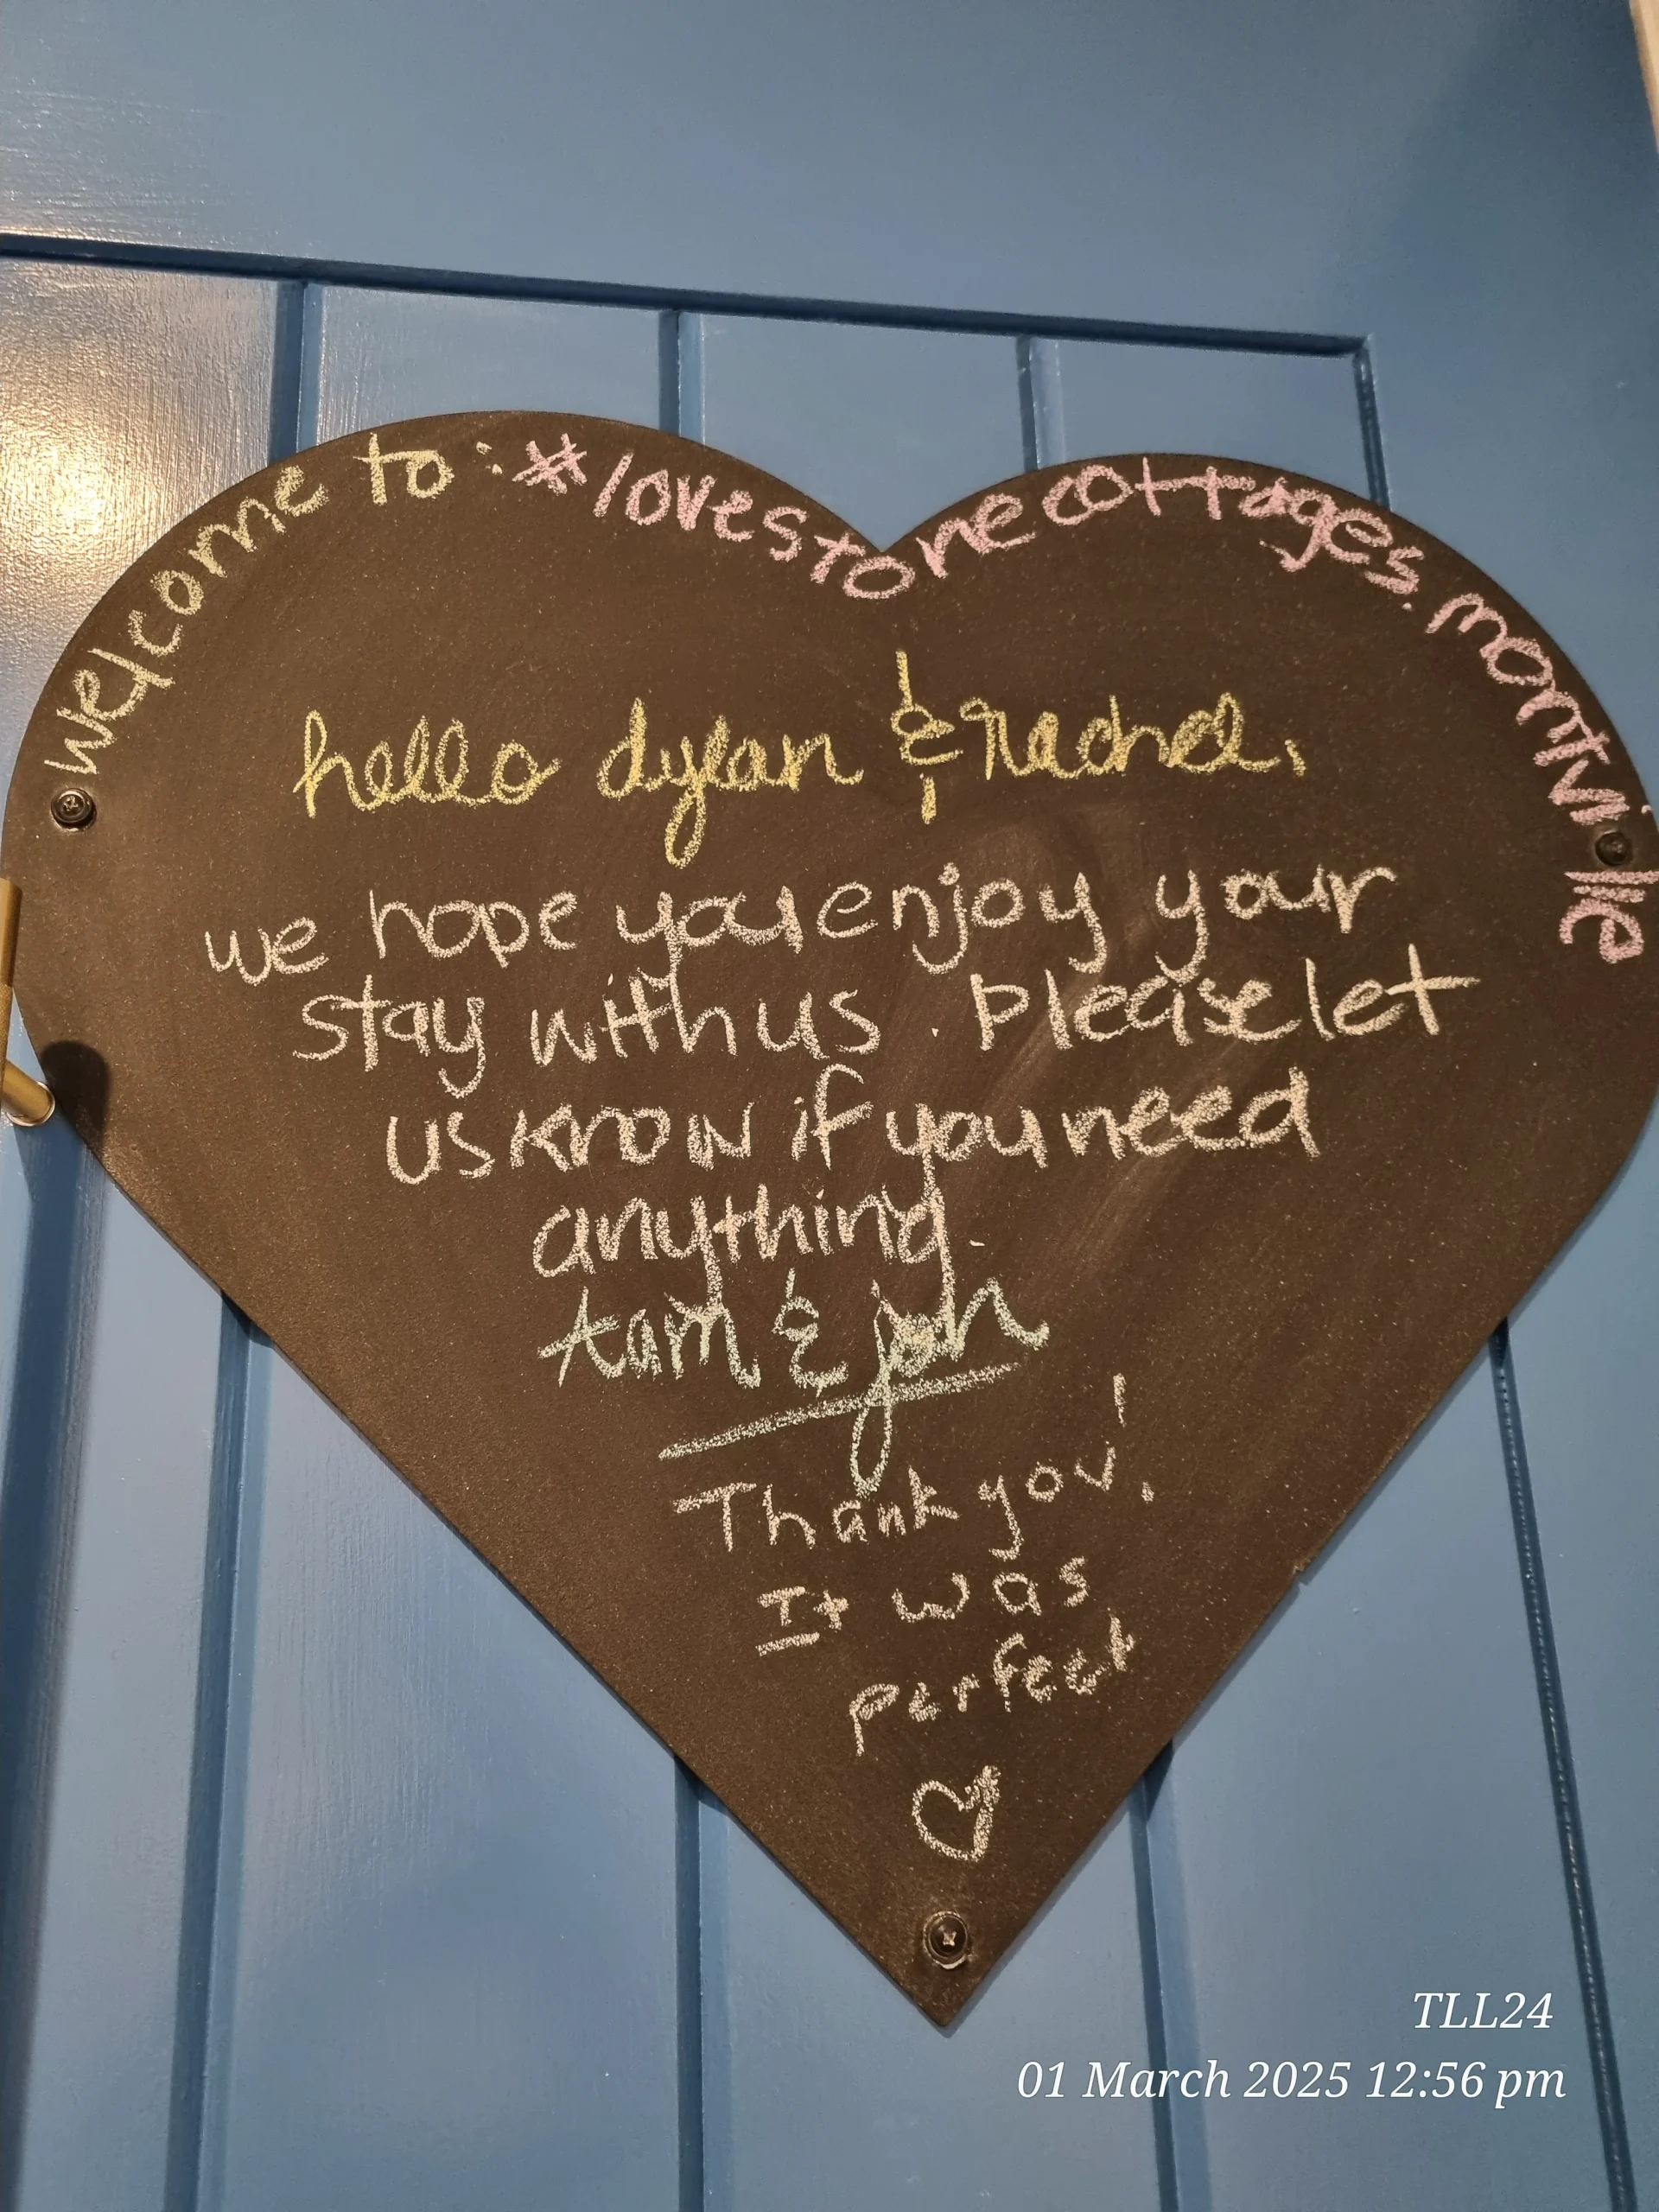 welcome to: #lovestonecottages.montville
hello dylan & rachel,
we hope you enjoy your
stay with us. Please let
us know if you need
anything.
tam & jon
Thank you!
It was
perfect
TLL24
01 March 2025 12:56 pm